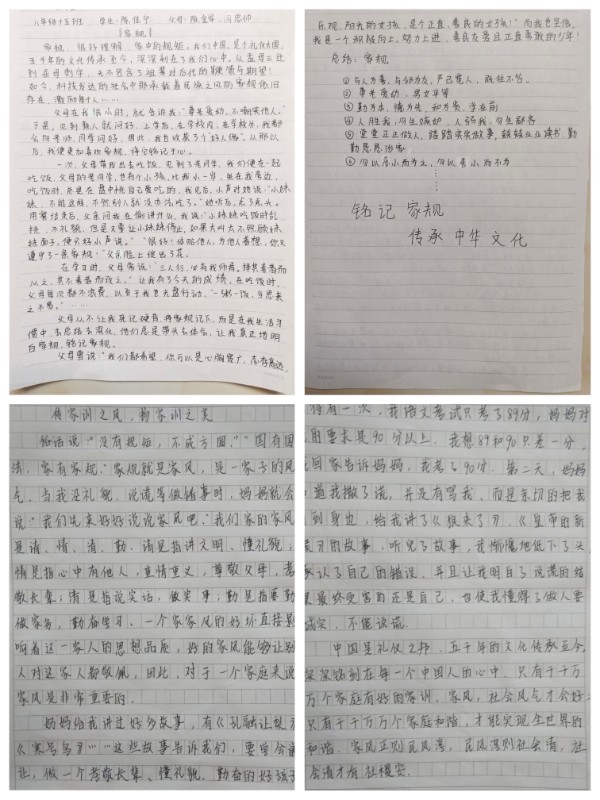 八年级十五班 学生:陈佳宁 父母:
《家规》
家规,很好理解,家中的规矩。我们中国,是个礼仪大国,
五千年的文化传承至今,深深刻在了我们心中。从孟母三迁
到岳母刺字,无不包含了祖辈对后代的
如今,科技发达的社会中那承载着民族之风的家规依旧
存在,激励着每个人……
父母在我很小时,就告诉我:“尊老爱幼,不嘲笑他人。”
于是,见到熟人就问好,上学后,在学校内,在学校外,我都
会问老师、同学问好。因此,我也收获了个“好人缘”。从那以
后,我便更加喜欢家规,将它铭记于心。
一次,父母带我出去吃饭,见到了老同学,我们便在一起
吃饭,父母的老同学,也有个小孩,比我小一岁,坐在我旁边,
吃饭时,总是在盘中挑自己爱吃的,我见后,小声对她说:“小妹
妹,不能这样,不然别人就没办法吃了。”她听后,点了点头。
用餐结束后,父亲问我在偷讲什么,我说:“小妹妹吃饭时乱
挑,不礼貌,但是又要让小妹妹停止,如果大叫太不照顾妹
妹面子,便只好小声说。”“很好!体贴他人,为他人着想,你又
遵守了一条家规!”父亲脸上绽出了花。
在学习时,父母常说:“三人行,必有我师焉。择其善者而
从之,其不善者而改之。”让我有了今天的成绩。在吃饭时,
父母每次都不浪费,以至于我也光盘行动,“一粥一饭,当思来
之不易。”……
父母从不让我死记硬背,将家规记下,而是在我生活习
惯中,去总结去深化,他们总是带头去体会,让我真正地明
白家规,铭记家规。
父母曾说:“我们都希望,你可以是心胸宽广,志存高远,
乐观、阳光的女孩,是个正直、善良的女孩!”而我也坚信,
我是一个积极向上,努力上进,善良友善且正直勇敢的少年!
总结:家规
① 与人为善,与邻为友,严己宽人,
② 尊老爱幼,男女平等
③ 勤为本,德为先,和为贵,学在前
④ 人胜我,勿生嫉妒,人弱我,勿生鄙吝
⑤ 堂堂正正做人,踏踏实实做事,兢兢业业读书,勤
勤恳恳治家
⑥ 勿以恶小而为之,勿以善小而不为
⋮
铭记 家规
传承 中华 文化
传家训之风,扬家训之美
俗话说:“没有规矩,不成方圆。”“国有国
法,家有家规。”家规就是家风,是一家子的风
气。当我没礼貌、说谎等做错事时,妈妈就会
说:“我们先来好好说说家风吧。”我们家的家风
是诸、情、清、勤。诸是指讲文明、懂礼貌;
情是指心中有他人,重情重义,尊敬父母,孝
敬长辈;清是指说实话,做实事;勤是指要勤
做家务,勤奋学习。一个家家风的好坏直接影
响着这一家人的思想品质,好的家风能够让别
人对这家人都敬佩,因此,对于一个家庭来说
家风是非常重要的。
妈妈给我讲过好多故事,有《孔融让梨》
《寒号鸟》……这些故事告诉我们,要学会谦
让,做一个孝敬长辈、懂礼貌、勤奋的好孩子
得有一次,我语文考试只考了89分,妈妈对
的要求是90分以上。我想89和90只差一分,
回家告诉妈妈,我考了90分。第二天,妈妈
道我撒了谎,并没有骂我,而是亲切的把我
到身边,给我讲了《狼来了》、《皇帝的新
装》的故事,听完了故事,我惭愧地低下了头
承认了自己的错误。并且让我明白了说谎的结
果最终受害的还是自己,也使我懂得了做人要
诚实,不能说谎。
中国是礼仪之邦,五千年的文化传承至今,
深深铭刻在每一个中国人的心中。只有千千万
万个家庭有好的家训、家风,社会风气才会好,
只有千千万万个家庭和谐,才能实现全世界的
和谐。家风正则民风淳,民风淳则社会清,社
会清才有社稷安。